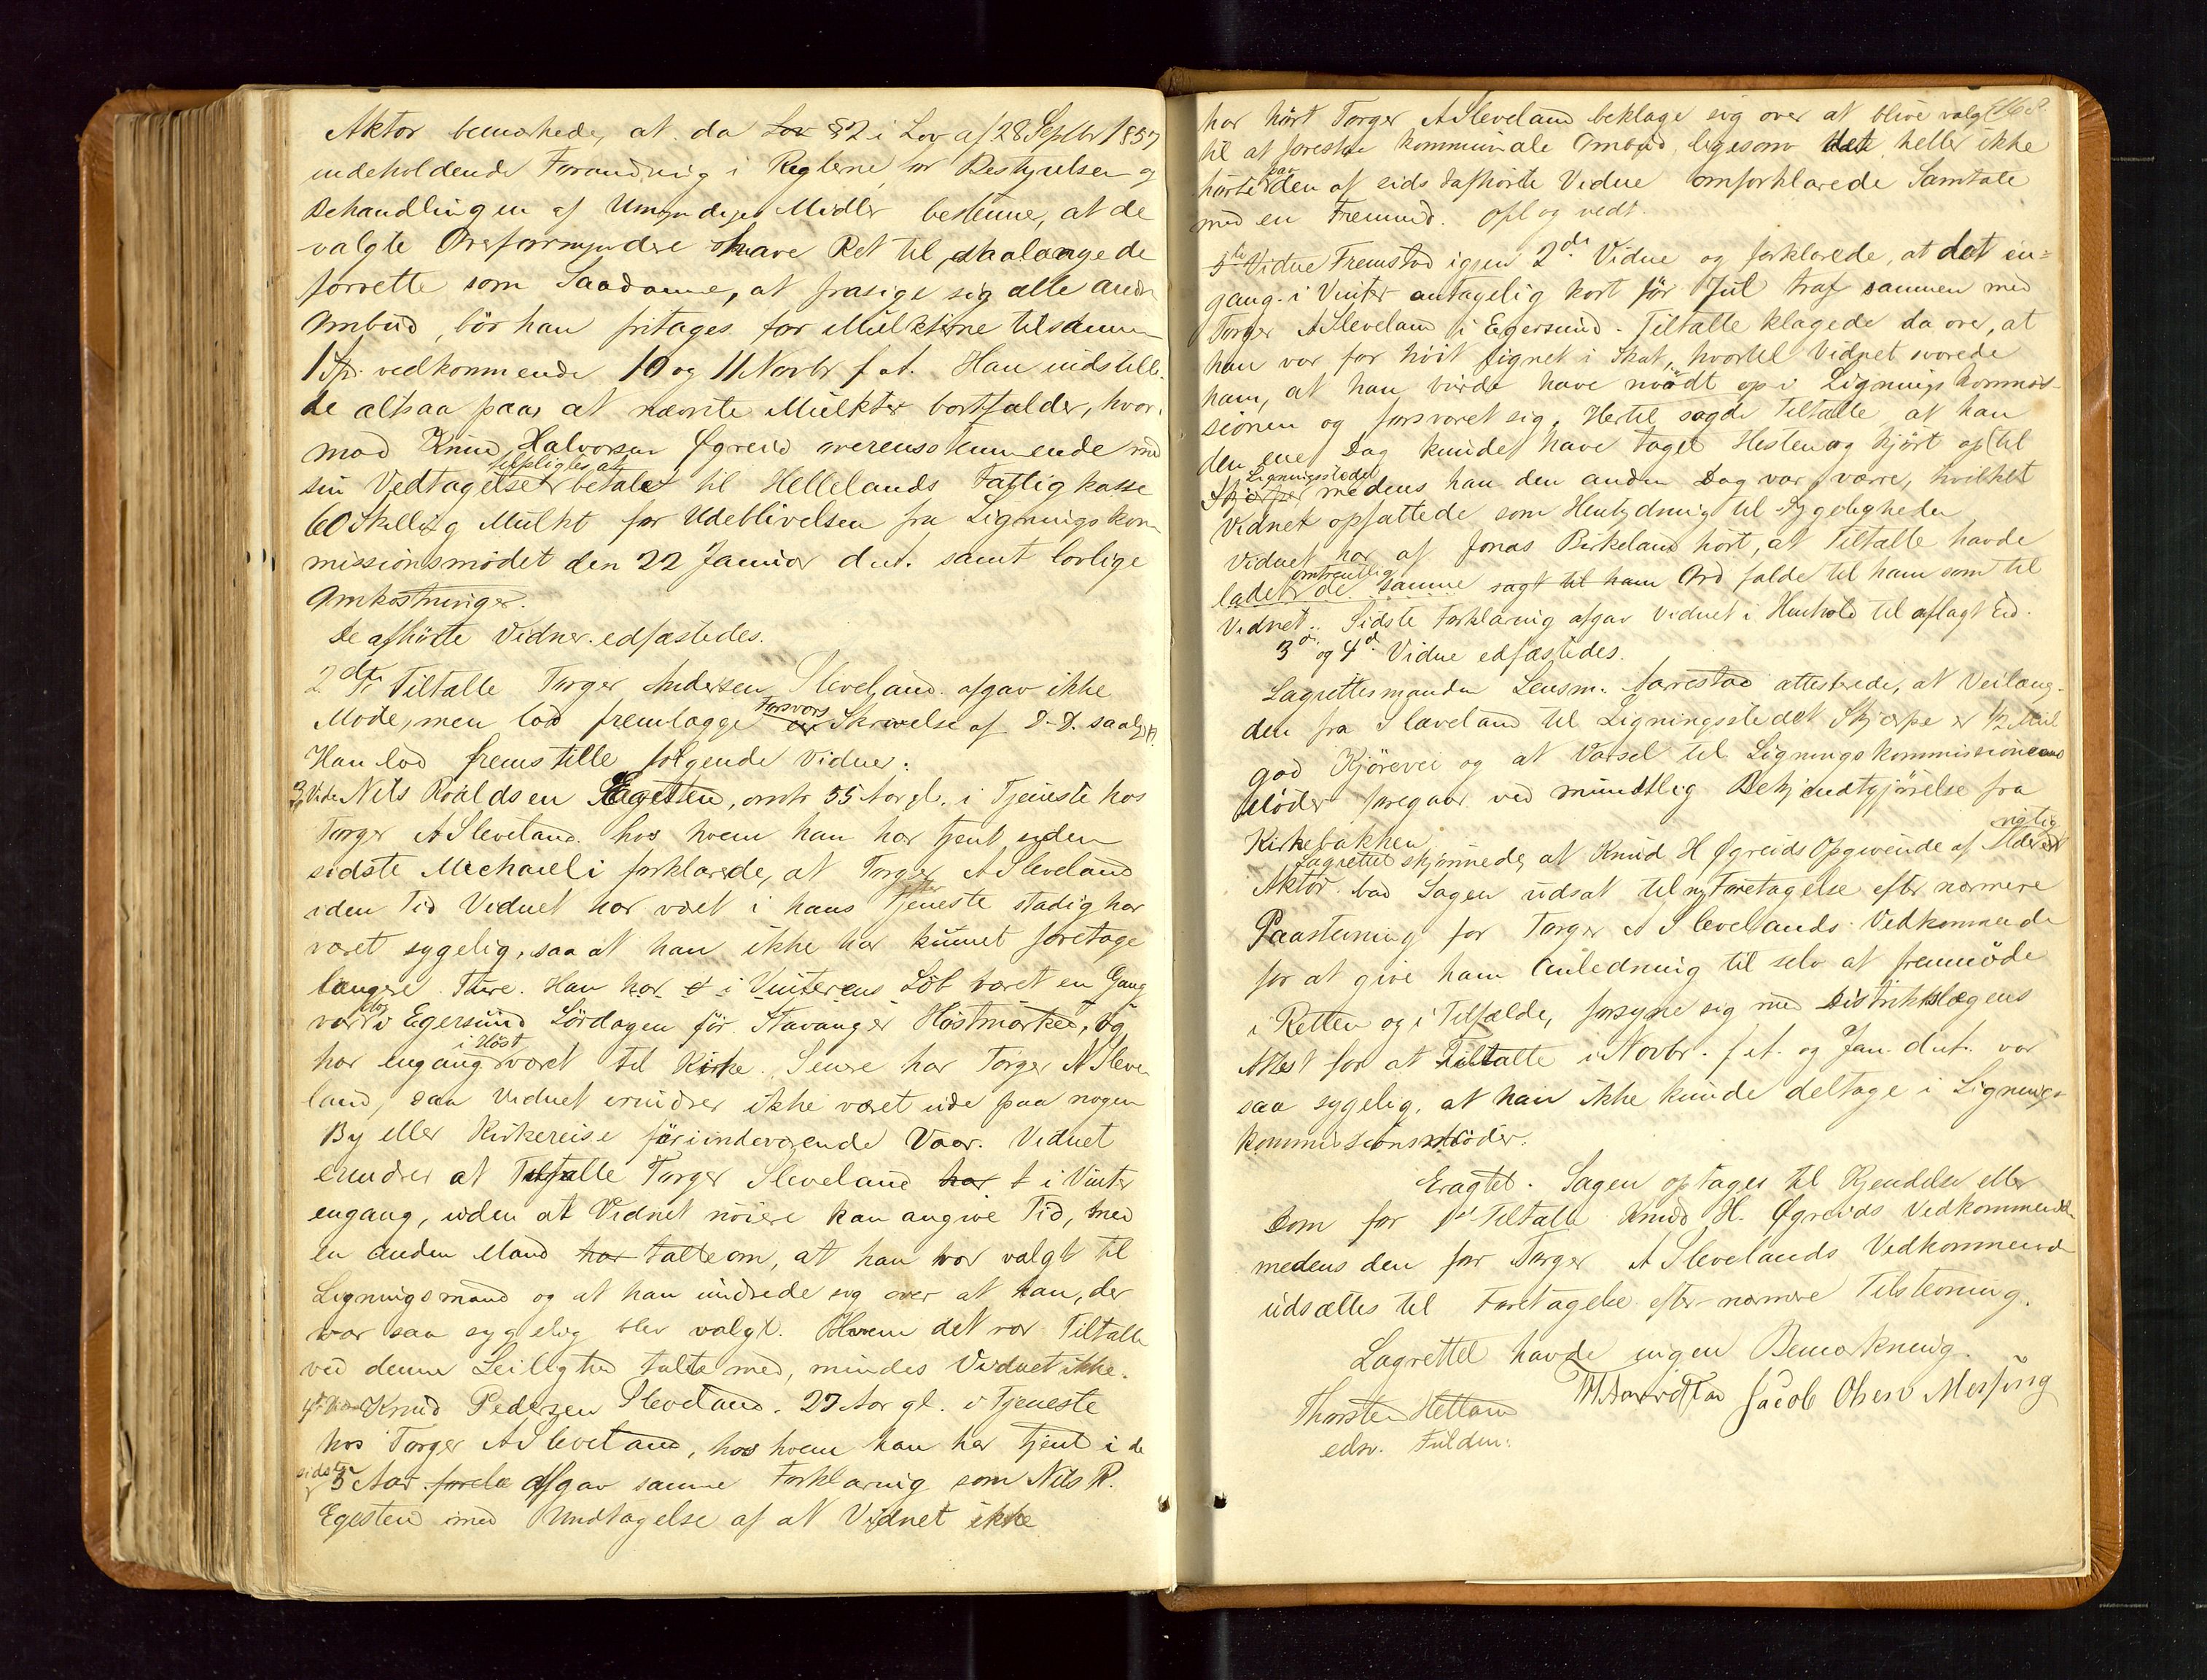 Aktor bemærkede, at da Lov §2 i Lov af 28 Septbr 1857
indeholdende Forandring i Reglerne for Bestyrelsen og
Behandlingen af Umyndiges Midler bestemmer, at de
valgte Overformyndere have Ret til, saalænge de
forrette som Saadanne, at frasige sig alle andre
Ombud, bör han fritages for Mulkterne tilsammen
1 Spd. vedkommende 10 og 11 Novbr f. A. Han indstill
de altsaa paa, at nævnte Mulkter bortfalder, hvor
mod Knud Halvorsen Øgreid overensstemmende med
tilpligtes at
sin Vedtagelse betale til Hellelands Fattigkasse
60 Skilling Mulkt for Udeblivelsen fra Ligningskom
missionsmödet den 22 Januar d. A. samt lovlige
Omkostninger.
De afhörte Vidner edfæstedes.
2den Tiltalte Torger Andersen Sleveland afgav ikke
Forsvars
Møde, men lod fremlægge en Skrivelse af D. D. saalydn.
Han lod fremstille fölgende Vidner:
3. Vidn Nils Roaldsen Egesten, omtr 55 Aar gl. i Tjeneste hos
Torger A Sleveland hos hvem han har tjent siden
sidste Michaeli forklarede, at Torger A Sleveland
iden Tid Vidnet har været i hans Tjeneste stadig har
været sygelig, saa at han ikke har kunnet foretage
længere Ture. Han har et i Vinterens Löb været en Gang
var i Egersund Lördagen för Stavanger Höstmarked, og
i Höst
har engang været til Kirke. Senere har Torger A Sleve
land, saa Vidnet erindrer ikke været ude paa nogen
By eller Kirkereise för iindeværende Vaar. Vidnet
erindrer at Tiltalte Torger Sleveland har t i Vinter
engang, uden at Vidnet nöiere kan angive Tid, med
en anden Mand har talte om, at han var valgt til
Ligningsmand og at han undrede sig over at han, der
var saa sygelig blev valgt. Hvem det var Tiltalte
ved denne Leilighed talte med, mindes Vidnet ikke.
4de Vidne Knud Pedersen Sleveland. 27 Aar gl. i Tjeneste
hos Torger A Sleveland, hos hvem han har tjent i de
sidste
3 Aar forkla afgav samme Forklaring som Nils R.
Egesten med Undtagelse af at Vidnet ikke
har hört Torger A Sleveland beklage sig over at blive valgt
til at forestaa kommunale Ombud, ligesom det heller ikke
paa
hörte den af sidst afhörte Vidne omforklarede Samtale
med en Fremmed. Opl og vedt.
5te Vidne Fremstod igjen 2det Vidne og forklarede, at det en=
gang i Vinter antagelig kort för Jul traf sammen med
Torger A Sleveland i Egersund. Tiltalte klagede da over, at
han var for höit lignet i Skat, hvortil Vidnet svarede
ham, at han burde have mödt op i Lignings kommis-
sionen og forsvaret sig. Hertil sagde Tiltalte at han
den ene Dag kunde have taget Hesten og kjört op til
Ligningsstedet
Skjerpe medens han den anden Dag var værre, hvilket
Vidnet opfattede som Hentydning til Sygeligheden
Vidnet har af Jonas Birkeland hört, at Tiltalte havde
omtrentlig
ladet de samme sagt til ham Ord falde til ham som til
Vidnet. Sidste Forklaring afgav Vidnet i Henhold til aflagt Ed.
3die og 4de Vidne edfæstedes.
Lagrettesmanden Lensm. Aarrestad attesterede, at Veilæng-
den fra Sleveland til Ligningsstedet Skjerpe er 1/2 Mil
god Kjörevei og at Varsel til Ligningskommissionens
Möder foregaar ved mundtlig Bekjendtgjörelse fra
Kirkebakken
Lagrettet skjönnede, at Knud H Øgreids Opgivende af Alder er rigtig
Aktor bad Sagen udsat til ny Foretagelse efter nærmere
Paastevning for Torger A Slevelands Vedkommende
for at give ham Anledning til selv at fremmöde
i Retten og i Tilfælde, forsyne sig med Distriktslægens
Attest for at Tiltalte i Novbr. f. A. og Jan. d. A. var
saa sygelig, at han ikke kunde deltage i Lignings
kommissionsmöder.
Eragtet. Sagen optages til Kjendelse eller
Dom for 1ste Tiltalte Knud H. Øgreids Vedkommende
medens den for Torger A Slevelands Vedkommende
udsættes til Foretagelse efter nærmere Tilstevning.
Lagrettet havde ingen Bemærkning.
Thorsten Helland Jacob Olsen Messing
edsv. Fuldm.